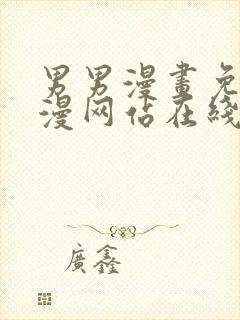 男男漫畫免
漫网佔在綫
廣鑫